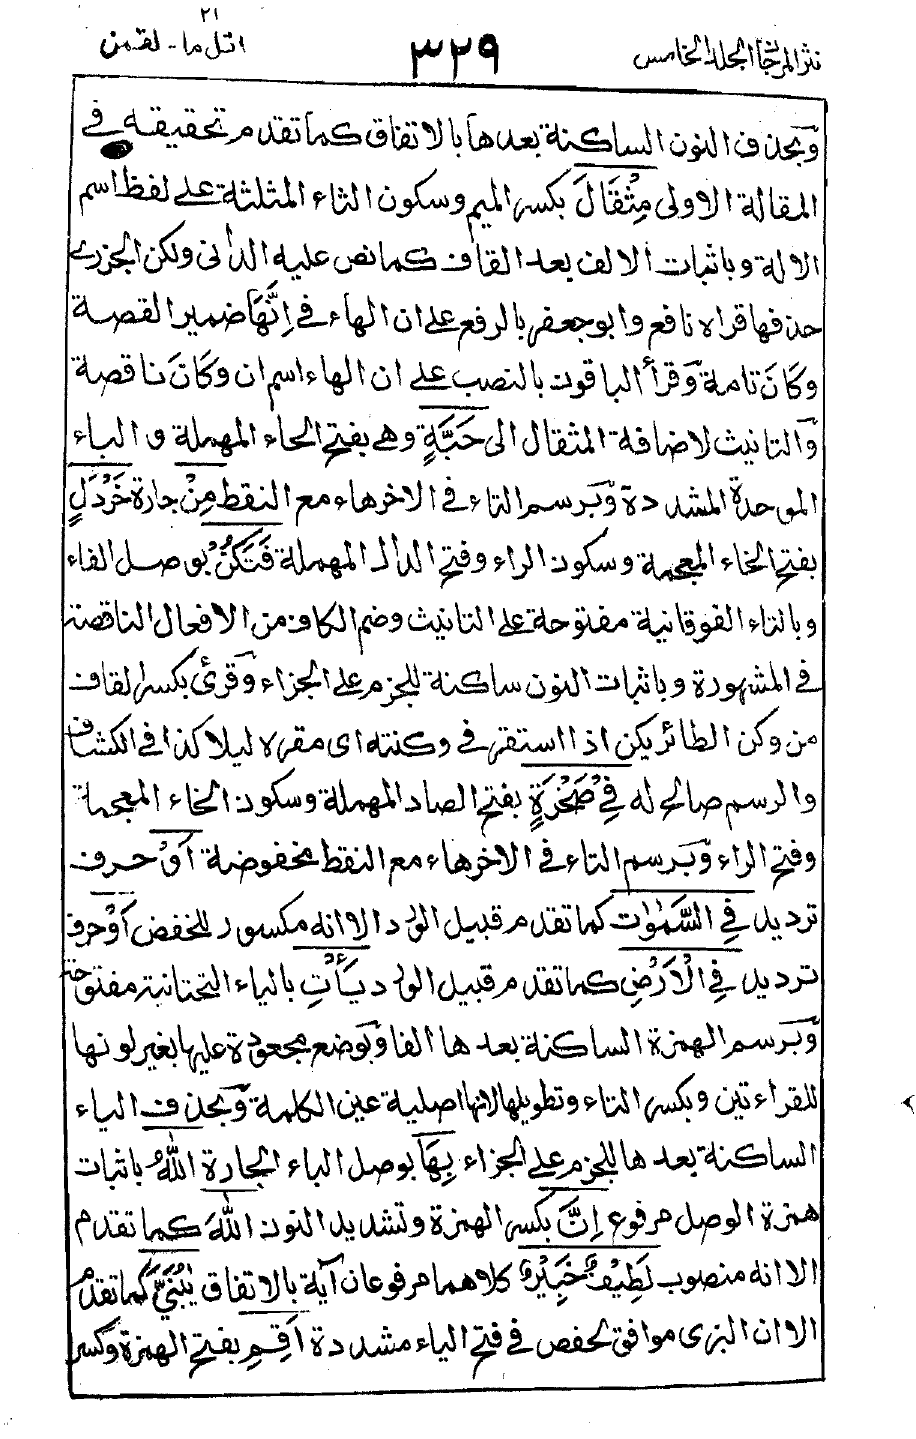 نثر المرجان المجلد الخامس
٣٢٩
اتل ما - لقمن
٢١
وبحذف النون الساكنة بعدها بالاتفاق كما تقدم تحقيقه في
المقالة الاولى مِثْقَالَ بكسر الميم وسكون الثاء المثلثة على لفظ اسم
الالة وباثبات الالف بعد القاف كما نص عليه الداني ولكن الجزري
حذفها قراه نافع وابو جعفر بالرفع على ان الهاء في اِنَّهَا ضمير القصة
وكَانَ تامة وقرأ الباقون بالنصب على ان الهاء اسم ان وكَانَ ناقصة
والتانيث لاضافة المثقال الى حَبَّةٍ وهي بفتح الحاء المهملة و الباء
الموحدة المشددة وبرسم التاء في الاخر هاء مع النقط مِنْ جارة خَرْدَلٍ
بفتح الخاء المعجمة وسكون الراء وفتح الدال المهملة فَتَكُنْ بوصل الفاء
وبالتاء الفوقانية مفتوحة على التانيث وضم الكاف من الافعال الناقصة
في المشهورة وباثبات النون ساكنة للجزم على الجزاء وقرئ بكسر القاف
من وكن الطائر يكن اذا استقر في وكنته اى مقره ليلا كذا في الكشاف
والرسم صالح له فِيْ صَخْرَةٍ بفتح الصاد المهملة وسكون الخاء المعجمة
وفتح الراء وبرسم التاء في الاخر هاء مع النقط مخفوضة اَوْ حرف
ترديد فِي السَّمٰوٰتِ كما تقدم قبيل الورد الا انه مكسور للخفض اَوْ حرف
ترديد فِي الْاَرْضِ كما تقدم قبيل الورد يَأْتِ بالياء التحتانية مفتوحة
وبرسم الهمزة الساكنة بعدها الفا وبوضع مجعودة عليها بغير لونها
للقراءتين وبكسر التاء وتطويلها لانها اصلية عين الكلمة وبحذف الياء
الساكنة بعدها للجزم على الجزاء بِهَا بوصل الباء الجارة اللّٰهُ باثبات
همزة الوصل مرفوع اِنَّ بكسر الهمزة وتشديد النون اللّٰهَ كما تقدم
الا انه منصوب لَطِيْفٌ خَبِيْرٌ كلاهما مرفوعان آية بالاتفاق يٰبُنَيَّ كما تقدم
الا ان البزى موافق لحفص في فتح الياء مشددة اَقِمِ بفتح الهمزة وكسر